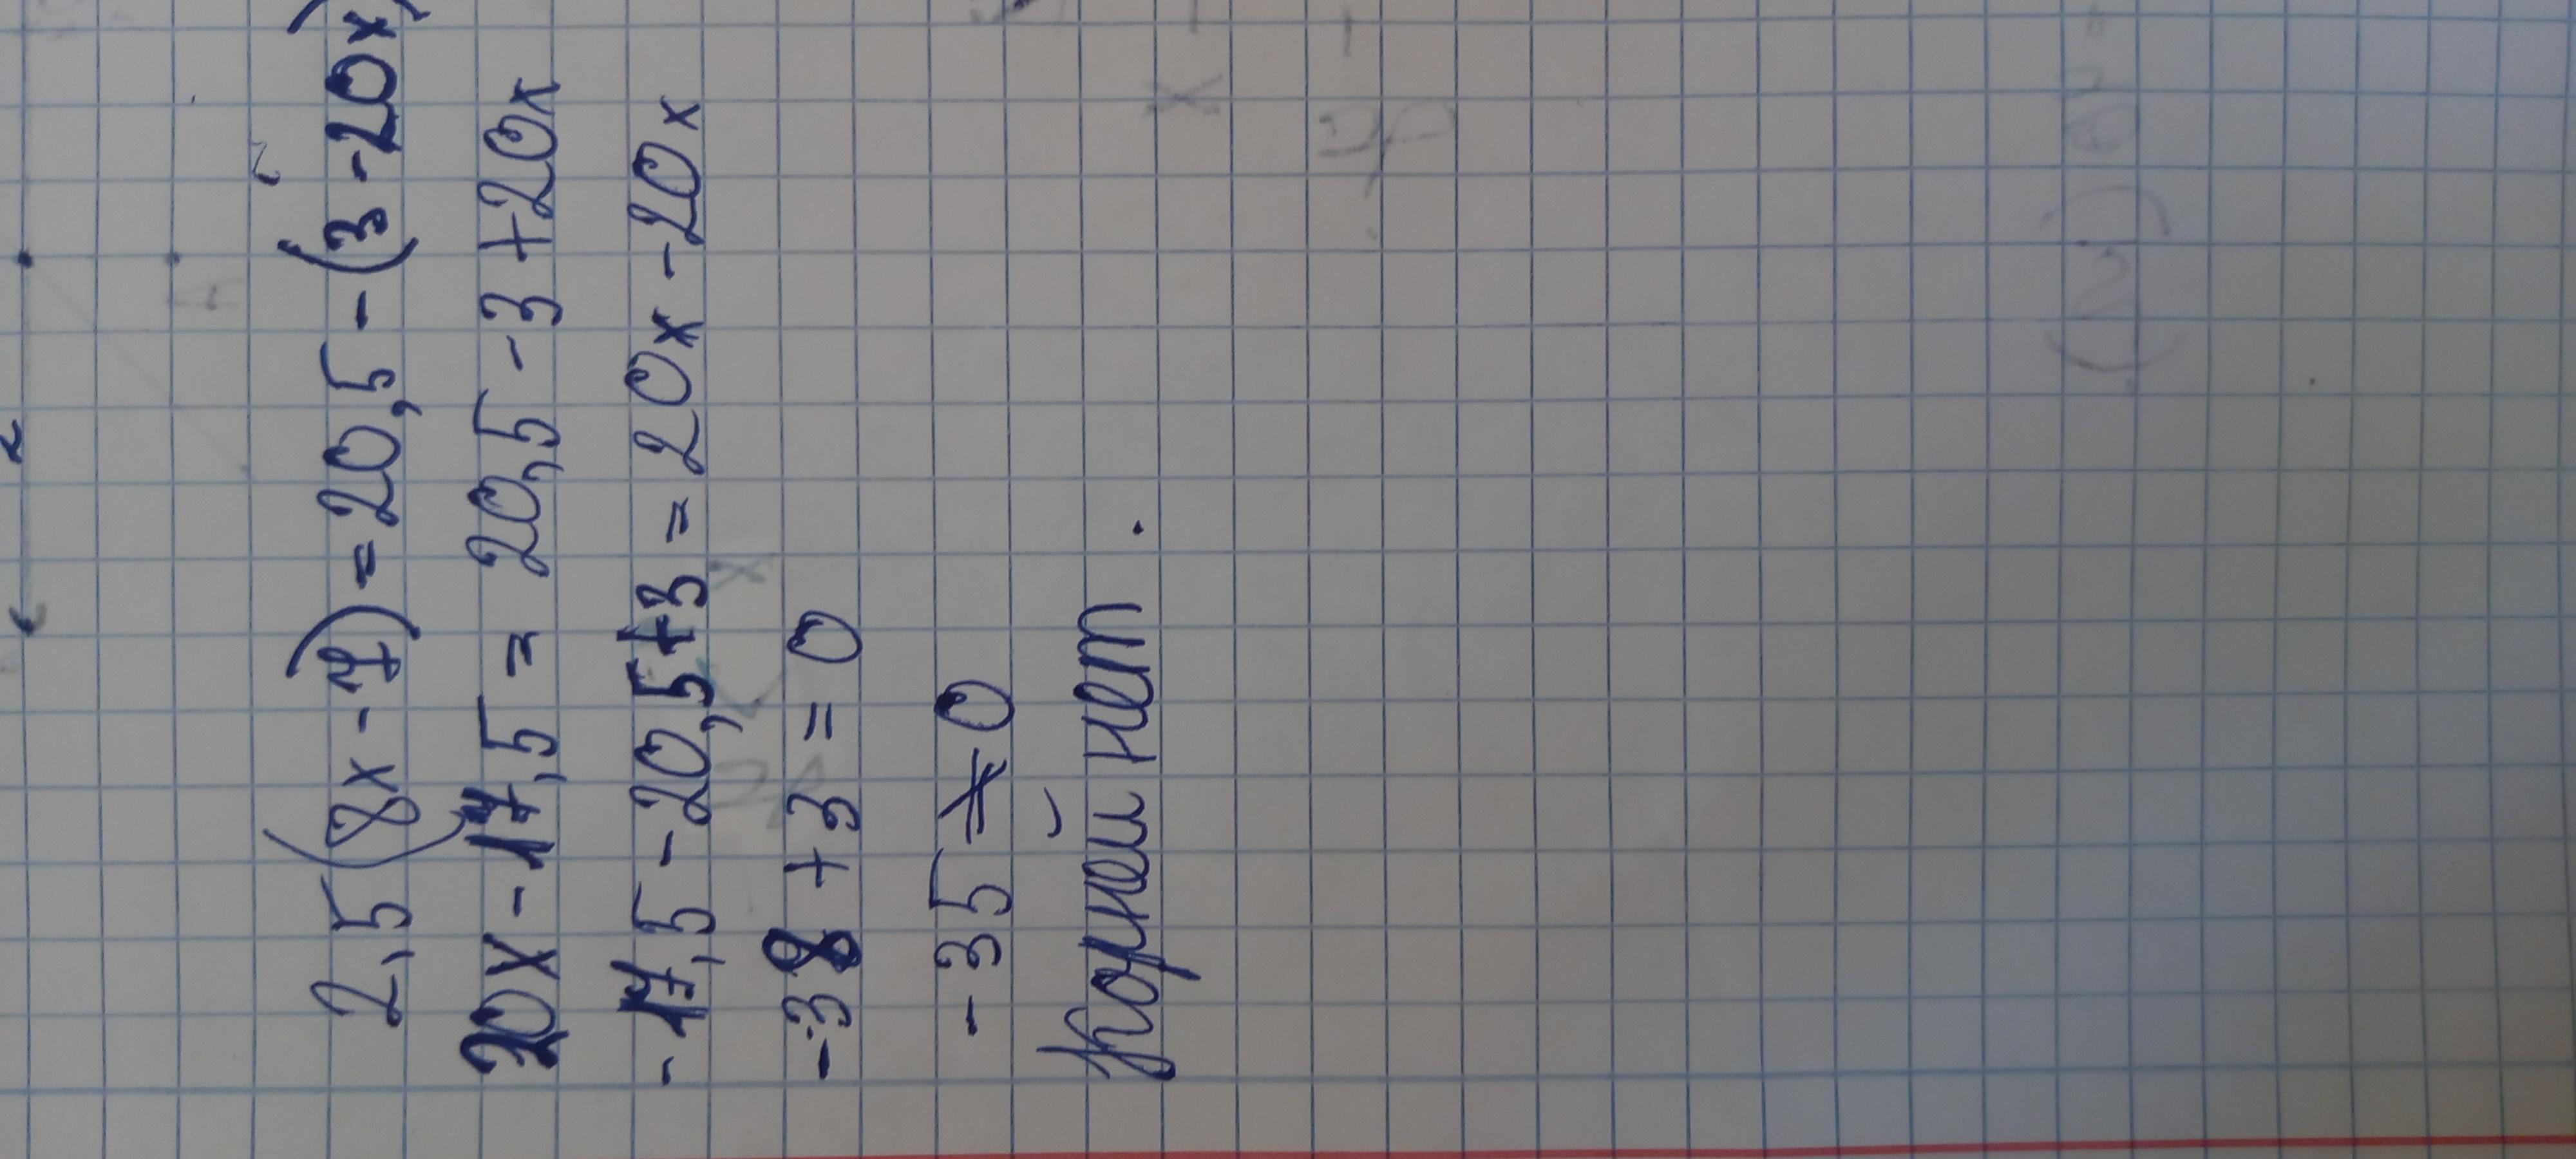 2,5(8x-7)=20,5-(3-20x)
20x-17,5=20,5-3+20x
-17,5-20,5+3=20x-20x
-38+3=0
-35≠0
Корней нет.